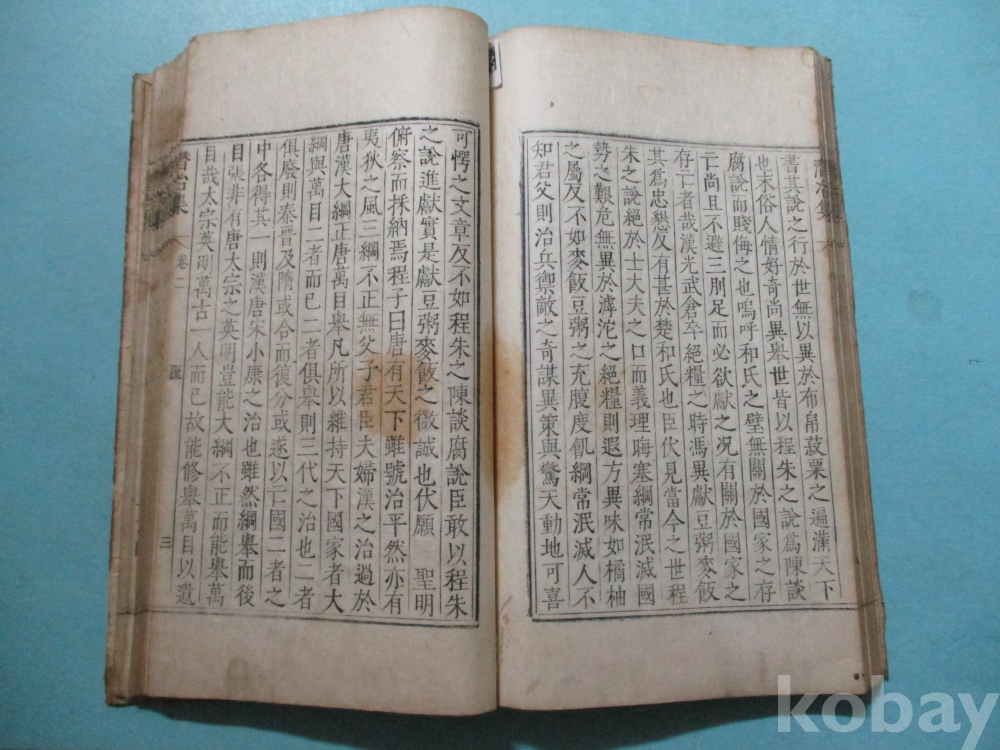 書其說之行於世無以異於布帛菽粟之遍滿天下
也末俗人情好奇尚異舉世皆以程朱之說爲陳談
腐說而賤侮之也嗚呼和氏之璧無關於國家之存
亡尚且不避三刖足而必欲獻之况有關於國家之
存亡者哉漢光武倉卒絕糧之時馮異獻豆粥麥飯
其爲忠懇反有甚於楚和氏也臣伏見當今之世程
朱之說絕於士大夫之口而義理晦塞綱常泯滅國
勢之艱危無異於滹沱之絕糧則遐方異味如橘柚
之屬反不如麥飯豆粥之充腹度飢綱常泯滅人不
知君父則治兵禦敵之奇謀異策與驚天動地可喜
可愕之文章反不如程朱之陳談腐說臣敢以程朱
之說進獻實是獻豆粥麥飯之微誠也伏願 聖明
俯察而採納焉程子曰唐有天下雖號治平然亦有
夷狄之風三綱不正無父子君臣夫婦漢之治過於
唐漢大綱正唐萬目舉凡所以維持天下國家者大
綱與萬目二者而已二者俱舉則三代之治也二者
俱廢則秦晉及隋或合而復分或遂以亡國二者之
中各得其一則漢唐宋小康之治也雖然綱舉而後
目張非有唐太宗之英明豈能大綱不正而能舉萬
目哉太宗英明萬古一人而已故能修舉萬目以遺
集
卷二
三
kobay